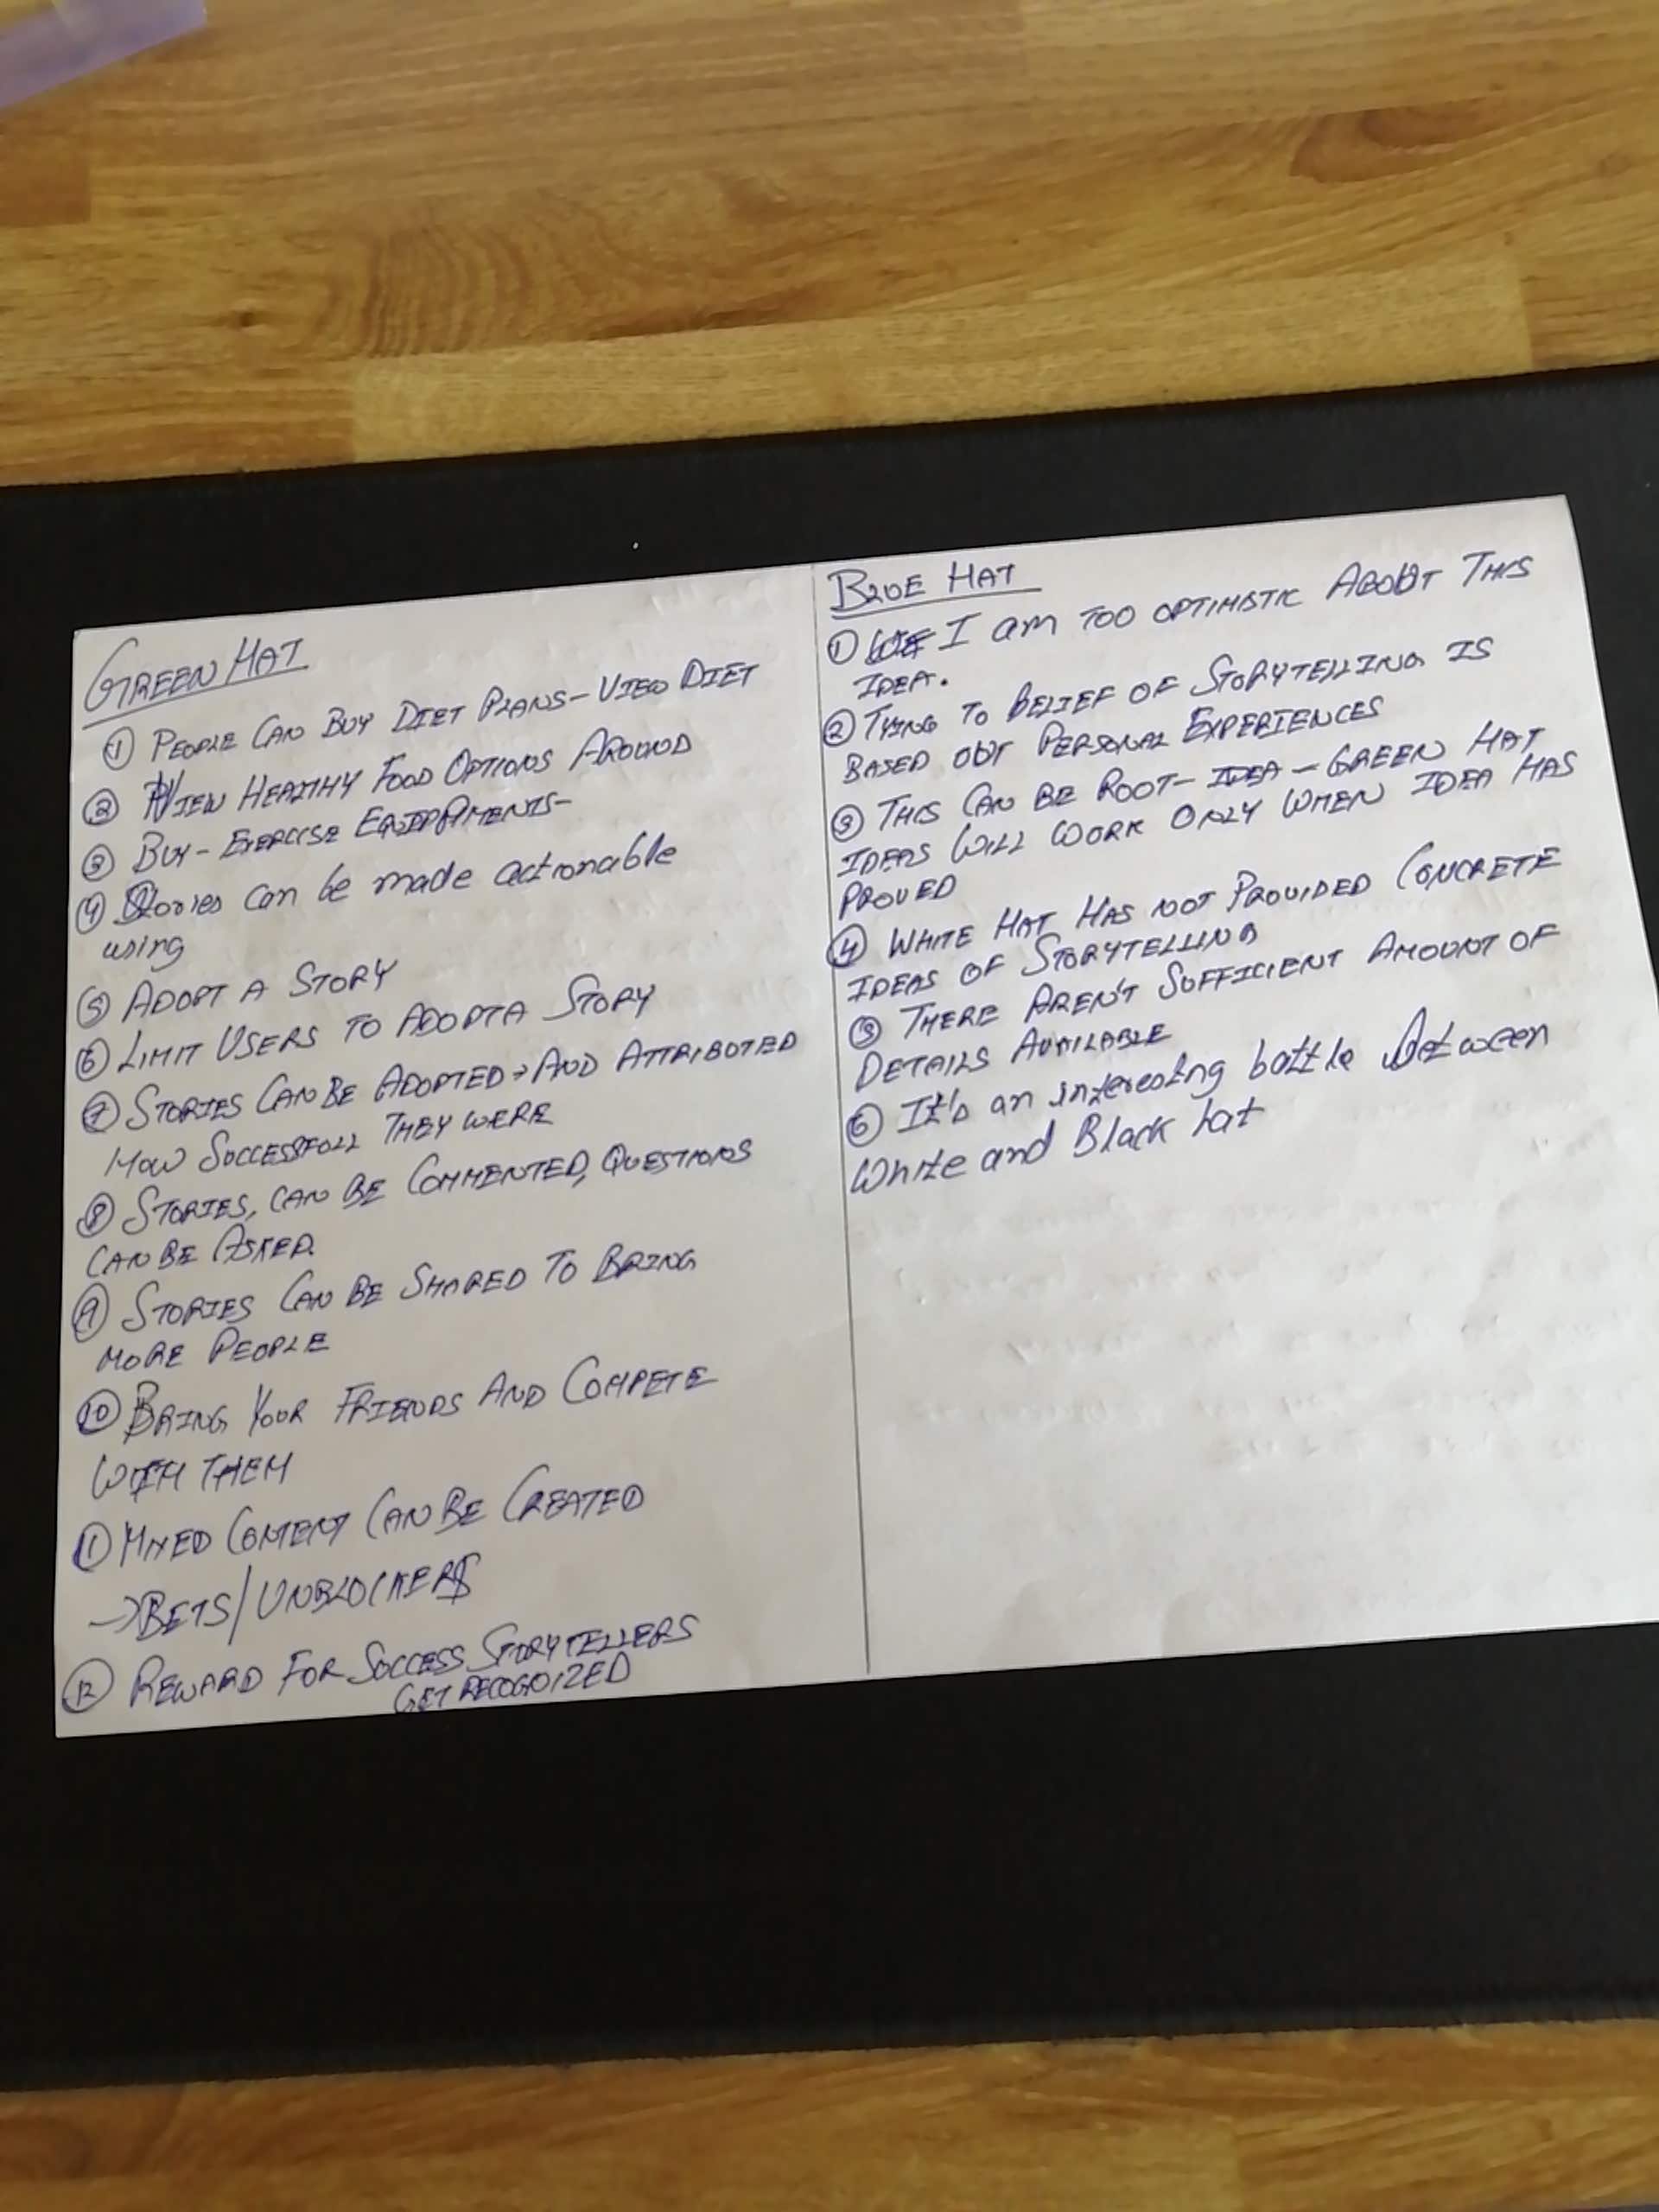 GREEN HAT
① PEOPLE CAN BUY DIET PLANS - VIEW DIET
② VIEW HEALTHY FOOD OPTIONS AROUND
③ BUY - EXERCISE EQUIPPMENTS -
④ Stories can be made actionable
using
⑤ ADOPT A STORY
⑥ LIMIT USERS TO ADOPT A STORY
⑦ STORIES CAN BE ADOPTED → AND ATTRIBUTED
HOW SUCCESSFULL THEY WERE
⑧ STORIES, CAN BE COMMENTED, QUESTIONS
CAN BE ASKED.
⑨ STORIES CAN BE SHARED TO BRING
MORE PEOPLE
⑩ BRING YOUR FRIENDS AND COMPETE
WITH THEM
⑪ MIXED CONTENT CAN BE CREATED
→ BETS/UNBLOCKERS
⑫ REWARD FOR SUCCESS STORYTELLERS
GET RECOGNIZED
BLUE HAT
① I am TOO OPTIMISTIC ABOUT THIS
IDEA.
② TYING TO BELIEF OF STORYTELLING IS
BASED OUT PERSONAL EXPERIENCES
③ THIS CAN BE ROOT - IDEA - GREEN HAT
IDEAS WILL WORK ONLY WHEN IDEA HAS
PROVED
④ WHITE HAT HAS NOT PROVIDED CONCRETE
IDEAS OF STORYTELLING
⑤ THERE AREN'T SUFFICIENT AMOUNT OF
DETAILS AVAILABLE
⑥ It's an interesting battle between
White and Black hat